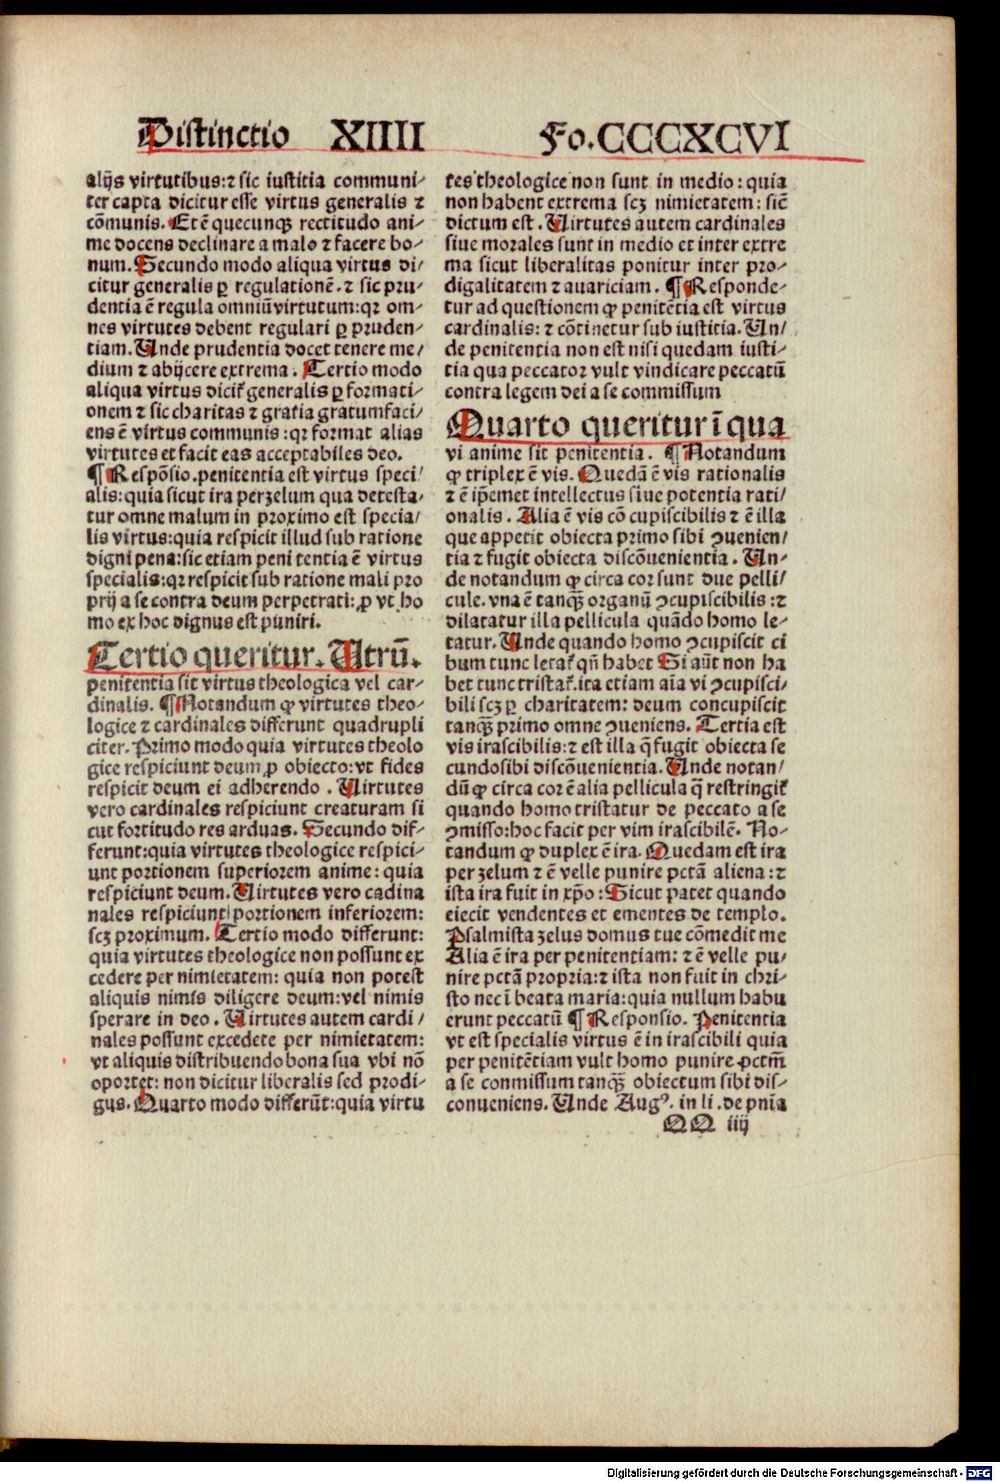 Distinctio XIIII Fo.CCCXCVI
alijs virtutibus:⁊ sic iustitia communi⸗
ter capta dicitur esse virtus generalis ⁊
cōmunis. Et ē quecunqꝫ rectitudo ani⸗
me docens declinare a malo ⁊ facere bo⸗
num. Secundo modo aliqua virtus di⸗
citur generalis ꝑ regulationē. ⁊ sic pru⸗
dentia ē regula omniū virtutum: qꝛ om⸗
nes virtutes debent regulari ꝑ pruden⸗
tiam. Unde prudentia docet tenere me⸗
dium ⁊ abijcere extrema. Tertio modo
aliqua virtus dicit᷑ generalis ꝑ formati⸗
onem ⁊ sic charitas ⁊ gratia gratumfaci⸗
ens ē virtus communis: qꝛ format alias
virtutes et facit eas acceptabiles deo.
¶ Respōsio. penitentia est virtus speci⸗
alis: quia sicut ira per zelum qua detesta⸗
tur omne malum in proximo est specia⸗
lis virtus: quia respicit illud sub ratione
digni pena: sic etiam peni tentia ē virtus
specialis: qꝛ respicit sub ratione mali pro
prij a se contra deum perpetrati: ꝓ vt ho
mo ex hoc dignus est puniri.
Tertio queritur. Utrū.
penitentia sit virtus theologica vel car⸗
dinalis. ¶ Notandum ꝙ virtutes theo⸗
logice ⁊ cardinales differunt quadrupli
citer. Primo modo quia virtutes theolo
gice respiciunt deum ꝓ obiecto: vt fides
respicit deum ei adherendo. Uirtutes
vero cardinales respiciunt creaturam si
cut fortitudo res arduas. Secundo dif⸗
ferunt: quia virtutes theologice respici⸗
unt portionem superiorem anime: quia
respiciunt deum. Uirtutes vero cadina
nales respiciunt portionem inferiorem:
scꝫ proximum. Tertio modo differunt:
quia virtutes theologice non possunt ex
cedere per nimietatem: quia non potest
aliquis nimis diligere deum: vel nimis
sperare in deo. Uirtutes autem cardi⸗
nales possunt excedere per nimietatem:
vt aliquis distribuendo bona sua vbi nō
oportet: non dicitur liberalis sed prodi⸗
gus. Quarto modo differūt: quia virtu
tes theologice non sunt in medio: quia
non habent extrema scꝫ nimietatem: sicē
dictum est. Uirtutes autem cardinales
siue morales sunt in medio et inter extre
ma sicut liberalitas ponitur inter pro⸗
digalitatem ⁊ auariciam. ¶ Responde⸗
tur ad questionem ꝙ penitētia est virtus
cardinalis: ⁊ cōtinetur sub iustitia. Un⸗
de penitentia non est nisi quedam iusti⸗
tia qua peccator vult vindicare peccatū
contra legem dei a se commissum
Quarto queritur ī qua
vi anime sit penitentia. ¶ Notandum
ꝙ triplex ē vis. Quedā ē vis rationalis
⁊ ē ip̄emet intellectus siue potentia rati⸗
onalis. Alia ē vis cō cupiscibilis ⁊ ē illa
que appetit obiecta primo sibi ꝯuenien⸗
tia ⁊ fugit obiecta discōuenientia. Un⸗
de notandum ꝙ circa cor sunt due pelli⸗
cule. vna ē tanqꝫ̄ organū ꝯcupiscibilis: ⁊
dilatatur illa pellicula quādo homo le⸗
tatur. Unde quando homo ꝯcupiscit ci
bum tunc letat᷑ qn̄ habet Si aūt non ha
bet tunc tristat᷑. ita etiam aīa vi ꝯcupisci⸗
bili scꝫ ꝑ charitatem: deum concupiscit
tanqꝫ̄ primo omne ꝯueniens. Tertia est
vis irascibilis: ⁊ est illa q̄ fugit obiecta se
cundo sibi discōuenientia. Unde notan⸗
dū ꝙ circa cor ē alia pellicula q̄ restringit᷑
quando homo tristatur de peccato a se
ꝯmisso: hoc facit per vim irascibilē. No⸗
tandum ꝙ duplex ē ira. Quedam est ira
per zelum ⁊ ē velle punire pctā aliena: ⁊
ista ira fuit in xp̄o: Sicut patet quando
eiecit vendentes et ementes de templo.
Psalmista zelus domus tue cōmedit me
Alia ē ira per penitentiam: ⁊ ē velle pu⸗
nire pctā propria: ⁊ ista non fuit in chri⸗
sto nec ī beata maria: quia nullum habu
erunt peccatū ¶ Responsio. Penitentia
vt est specialis virtus ē in irascibili quia
per penitētiam vult homo punire pctm̄
a se conmissum tanqꝫ̄ obiectum sibi dis⸗
conueniens. Unde Augꝰ. in li. de pn̄ia
QQ iiij
Digitalisierung gefördert durch die Deutsche Forschungsgemeinschaft - DFG